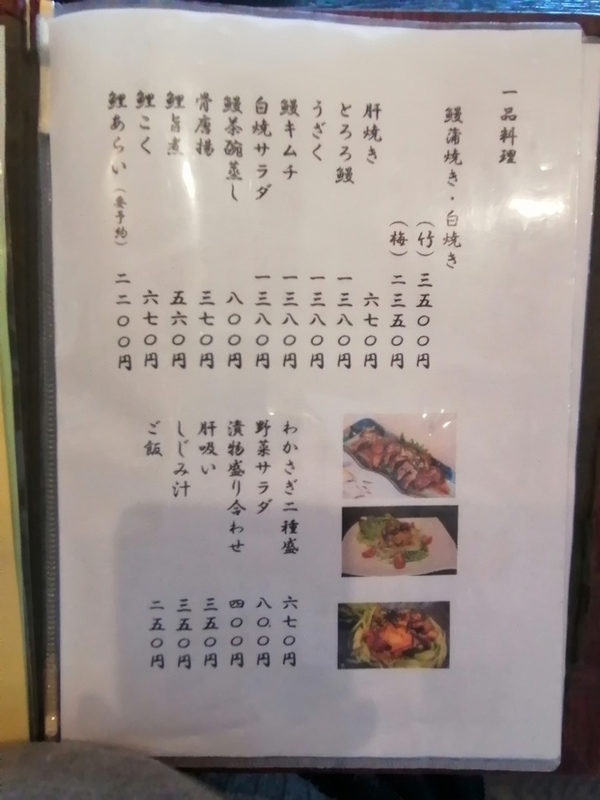 一品料理
鰻蒲焼き・白焼き
(竹) 三五〇〇円
(梅) 二三五〇円
肝焼き 六七〇円
とろろ鰻 一三八〇円
うざく 一三八〇円
鰻キムチ 一三八〇円
白焼サラダ 一三八〇円
鰻茶碗蒸し 八〇〇円
骨唐揚 三七〇円
鯉旨煮 五六〇円
鯉こく 六七〇円
鯉あらい(要予約) 二二〇〇円
わかさぎ二種盛 六七〇円
野菜サラダ 八〇〇円
漬物盛り合わせ 四〇〇円
肝吸い 三五〇円
しじみ汁 三五〇円
ご飯 二五〇円